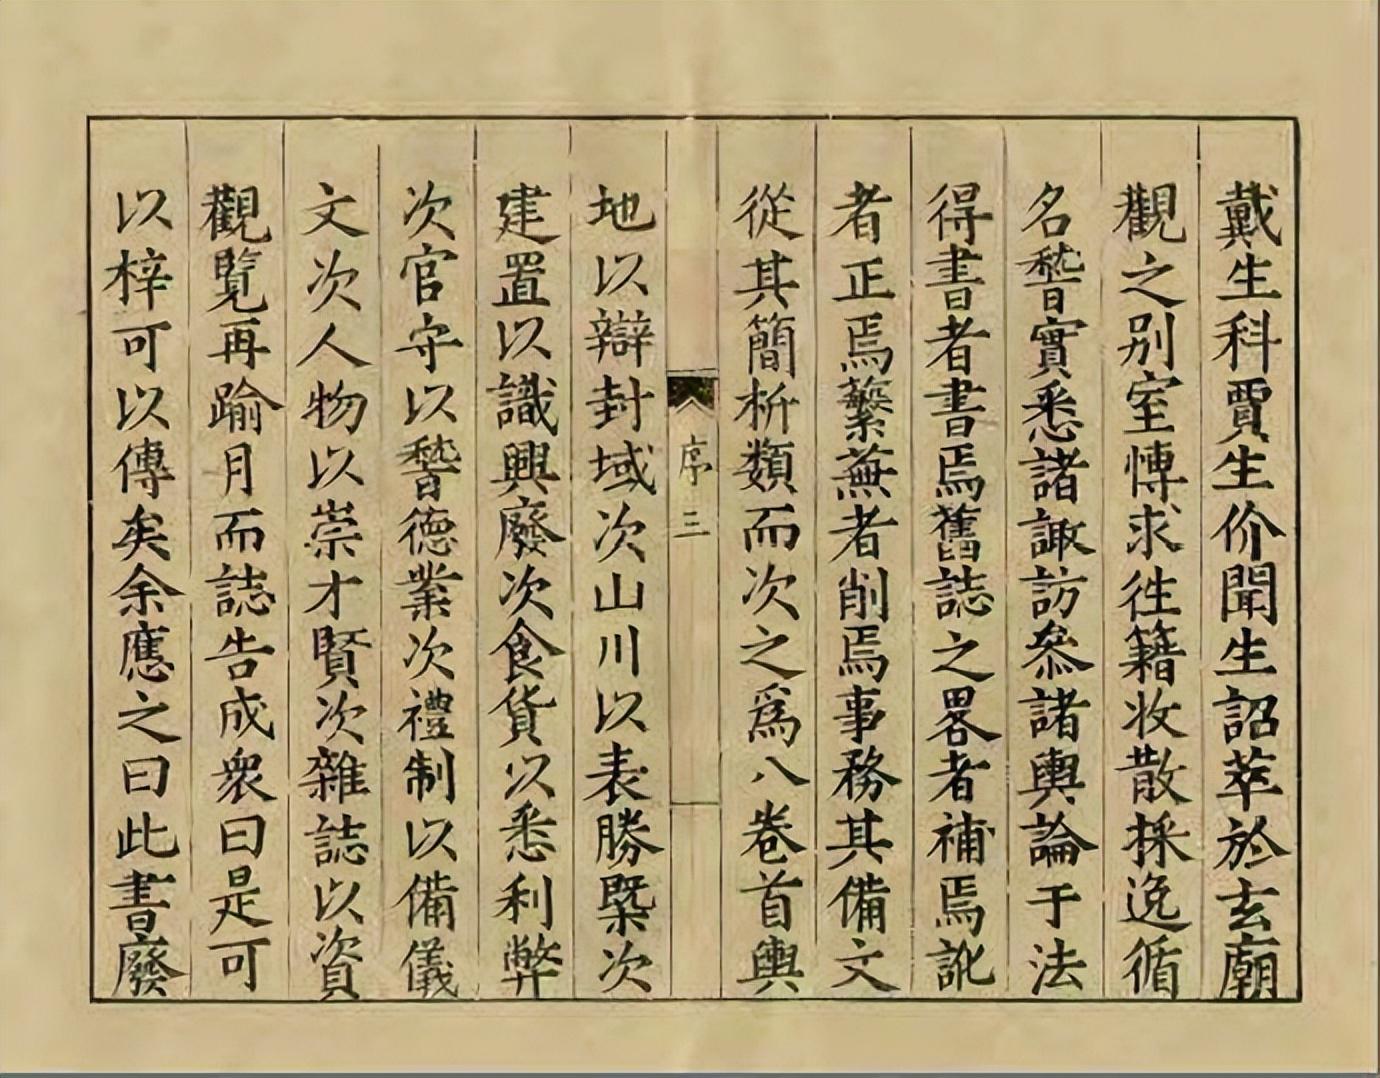 戴生科賈生价聞生詔萃於玄廟
觀之别室慱求徃籍收散採逸循
名嵆實悉諸諏訪叅諸輿論于法
得書者書焉舊誌之畧者補焉訛
者正焉蘩蕪者削焉事務其備文
從其簡析類而次之爲八卷首輿
序 三
地以辯封域次山川以表勝槩次
建置以識興廢次食貨以悉利弊
次官守以嵆德業次禮制以備儀
文次人物以崇才賢次雜誌以資
觀覧再踰月而誌告成衆曰是可
以梓可以傳矣余應之曰此書廢